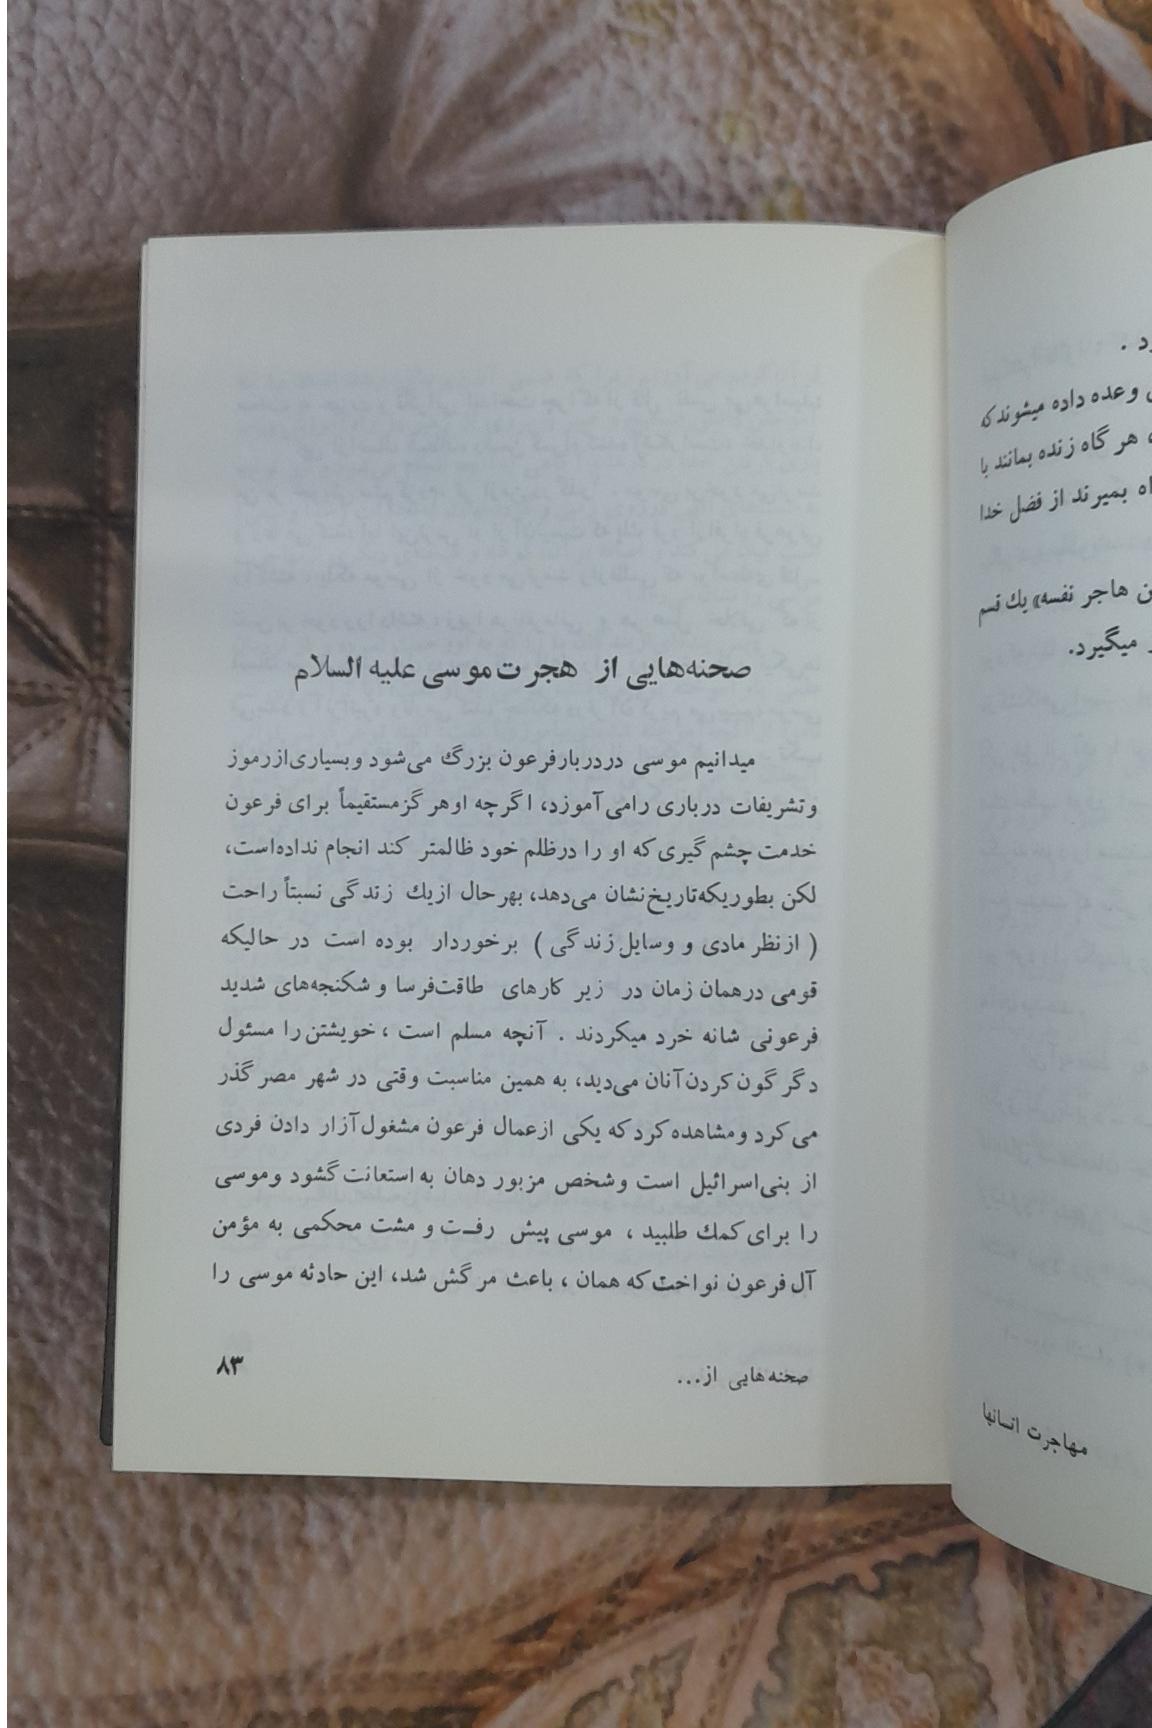 د .
وعده داده میشوند که
هر گاه زنده بمانند با
اه بمیرند از فضل خدا
ن هاجر نفسه» يك قسم
میگیرد.
مهاجرت انسانها
صحنه‌هایی از هجرت موسی علیه السلام
میدانیم موسی دردربارفرعون بزرگ می‌شود وبسیاری‌ازرموز
وتشریفات درباری رامی‌آموزد، اگرچه اوهرگزمستقیماً برای فرعون
خدمت چشم گیری‌که او را درظلم خود ظالمتر کند انجام نداده‌است،
لکن بطوریکه‌تاریخ‌نشان می‌دهد، بهرحال ازيك زندگی نسبتاً راحت
( ازنظر مادی و وسایل زندگی ) برخوردار بوده است در حالیکه
قومی درهمان زمان در زیر کارهای طاقت‌فرسا و شکنجه‌های شدید
فرعونی شانه خرد میکردند . آنچه مسلم است ، خویشتن را مسئول
دگرگون کردن آنان می‌دید، به همین مناسبت وقتی در شهر مصر گذر
می‌کرد ومشاهده کرد که یکی ازعمال فرعون مشغول آزار دادن فردی
از بنی‌اسرائیل است وشخص مزبور دهان به استعانت گشود وموسی
را برای کمك طلبید ، موسی پیش رفـت و مشت محکمی به مؤمن
آل فرعون نواخت‌که همان ، باعث مرگش شد، این حادثه موسی را
صحنه‌هایی از...
۸۳